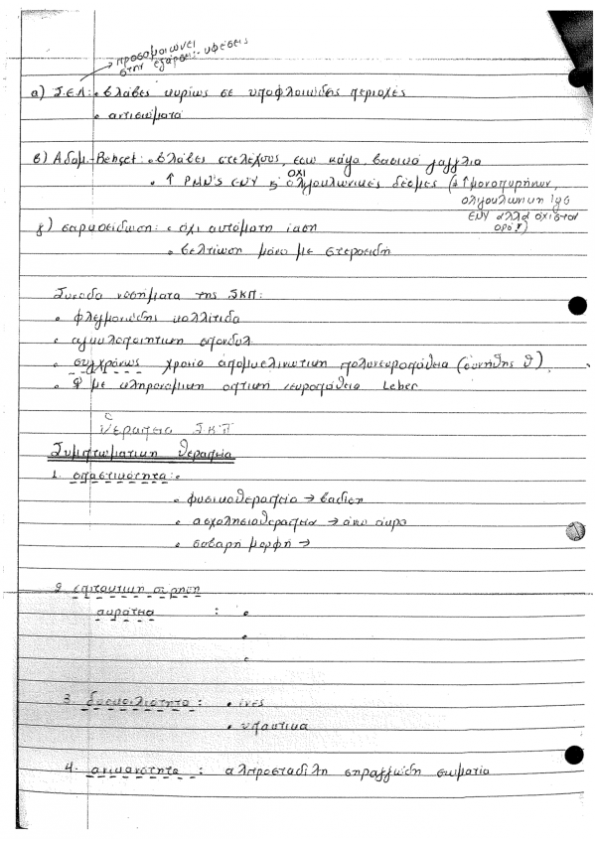 προσομοιώνει
στην εξάρσεις - υφέσεις
α) Σ.Ε.Λ: • βλάβες κυρίως σε υποφλοιώδης περιοχές
• αντισώματα
β) Αδαμ.-Behçet: • βλάβες στελέχους, εσω κάψα, βασικά γαγγλια
• ↑ PMN'S ΕΝΥ
όχι ολιγοκλωνικές δέσμες (↓↑μονοπυρήνων,
ολιγοκλωνικη IgG
ΕΝΥ αλλά όχι στον
ορό!)
γ) σαρκοείδωση: • όχι αυτόματη ίαση
• βελτίωση μόνο με στεροειδή
Συνοδα νοσήματα της ΣΚΠ:
• φλεγμονώδης κολλίτιδα
• αγκυλοποιητικη σπονδυλ
• συγχρόνως χρονια απομυελινωτικη πολυνευροπάθεια (συνήθης θ)
• ♀ με κληρονομικη οπτική νευροπάθεια Leber
Θεραπεια ΣΚΠ
Συμπτωματικη θεραπεια
1. σπαστικότητα: •
• φυσικοθεραπεία → βαδιση
• ασχολησιοθεραπεία → άνω άκρα
• σοβαρή μορφή →
2. επιτακτικη ούρηση
ακράτεια : •
•
•
3. δυσκοιλιότητα: • ίνες
• υπακτικα
4. ανικανότητα : σηραγγώδη σωματια